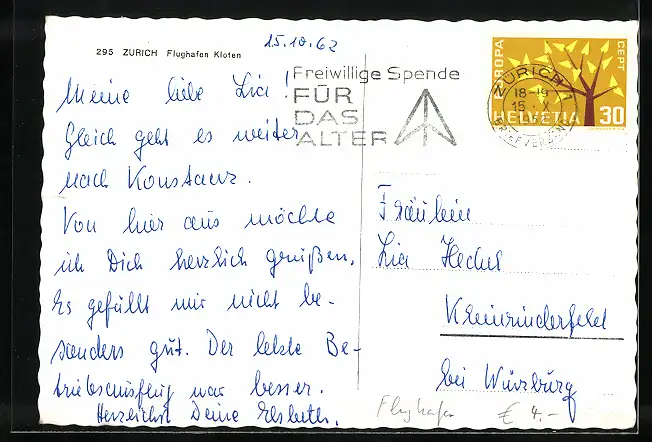 15.10.62
295 ZURICH Flughafen Kloten
Meine liebe Lia!
Gleich geht es weiter
nach Konstanz.
Von hier aus möchte
ich Dich herzlich genießen.
Es gefällt mir nicht be-
sonders gut. Der letzte Be-
triebsausflug war besser.
Herzlichst Deine Elsbeth.
Freiwillige Spende
FÜR
DAS
ALTER
EUROPA
CEPT
HELVETIA 30
ZÜRICH 1
18-19
15. X
BRIEFVERSAND
Fräulein
Lia Heckel
Kleinrinderfeld
bei Würzburg
Flughafen
€ 4.-